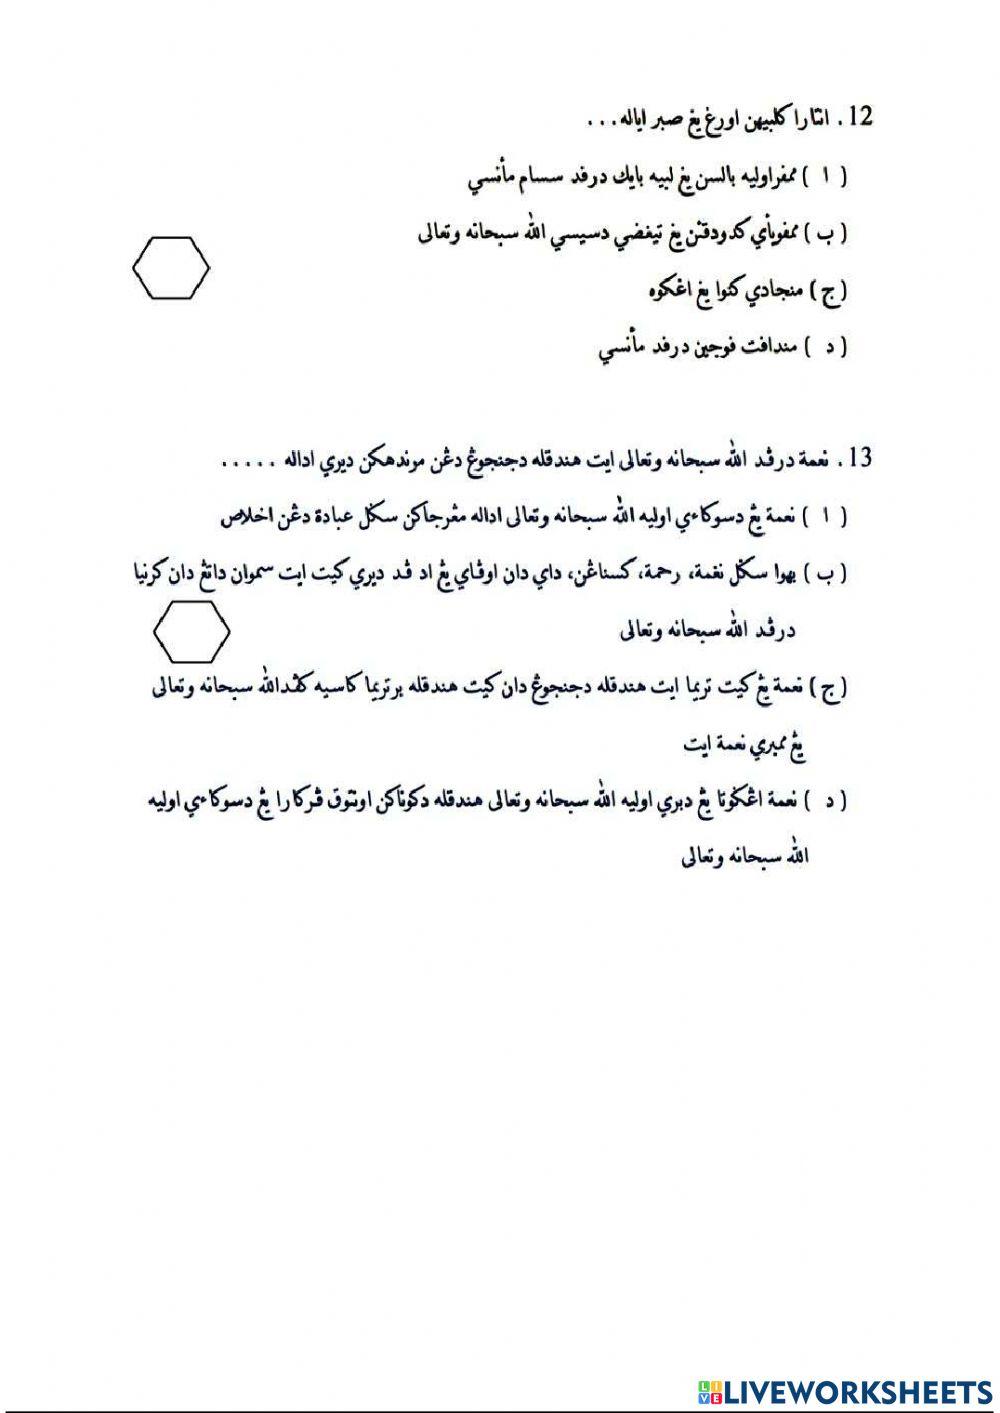 12. انتارا كلبيهن اورغ يغ صبر اياله...
( ا ) ممفراوليه بالسن يغ لبيه بايك درفد سسام مأنسي
( ب ) ممفوياٴي كدودقنن يغ تيغضي دسيسي الله سبحانه وتعالى
( ج ) منجادي كتوا يغ اغكوه
( د ) مندافت فوجين درفد مأنسي
13. نعمة درڤد الله سبحانه وتعالى ايت هندقله دجنجوڠ دڠن موندهكن ديري اداله .....
( ا ) نعمة يڠ دسوكاءي اوليه الله سبحانه وتعالى اداله مڠرجاكن سݢل عبادة دڠن اخلاص
( ب ) بهوا سݢل نغمة، رحمة، كسناڠن، داي دان اوڤاي يڠ اد ڤد ديري كيت ايت سموان داتڠ دان كرنيا
درڤد الله سبحانه وتعالى
( ج ) نعمة يڠ كيت تريما ايت هندقله دجنجوڠ دان كيت هندقله برتريما كاسيه كڤدالله سبحانه وتعالى
يڠ ممبري نعمة ايت
( د ) نعمة اڠݢوتا يڠ دبري اوليه الله سبحانه وتعالى هندقله دݢوناكن اونتوق ڤركارا يڠ دسوكاءي اوليه
الله سبحانه وتعالى
LIVEWORKSHEETS